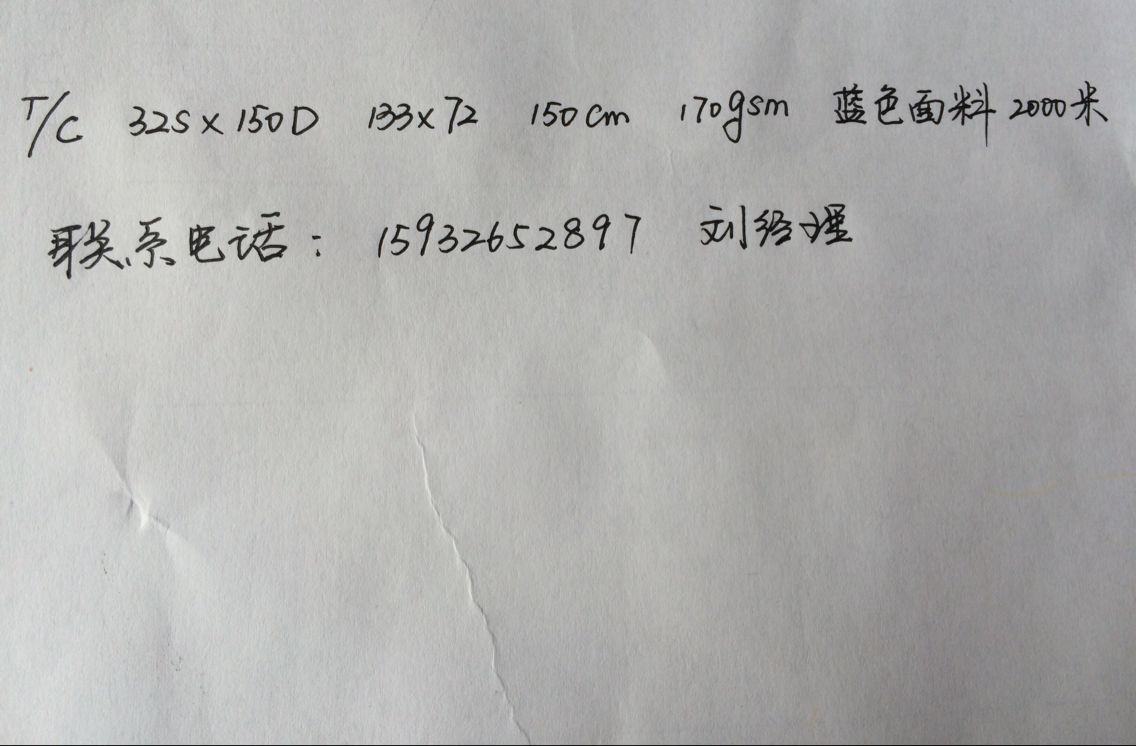 T/C 32S×150D 133×72 150cm 170gsm 蓝色面料 2000米
联系电话：15932652897 刘经理